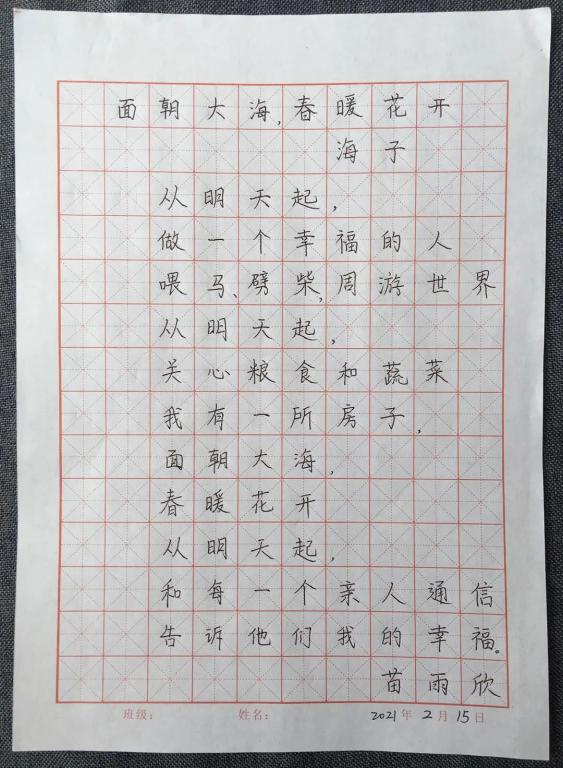 面朝大海,春暖花开
海子
从明天起,
做一个幸福的人
喂马、劈柴,周游世界
从明天起,
关心粮食和蔬菜
我有一所房子,
面朝大海,
春暖花开
从明天起,
和每一个亲人通信
告诉他们我的幸福。
苗雨欣
班级: 姓名: 2021年2月15日